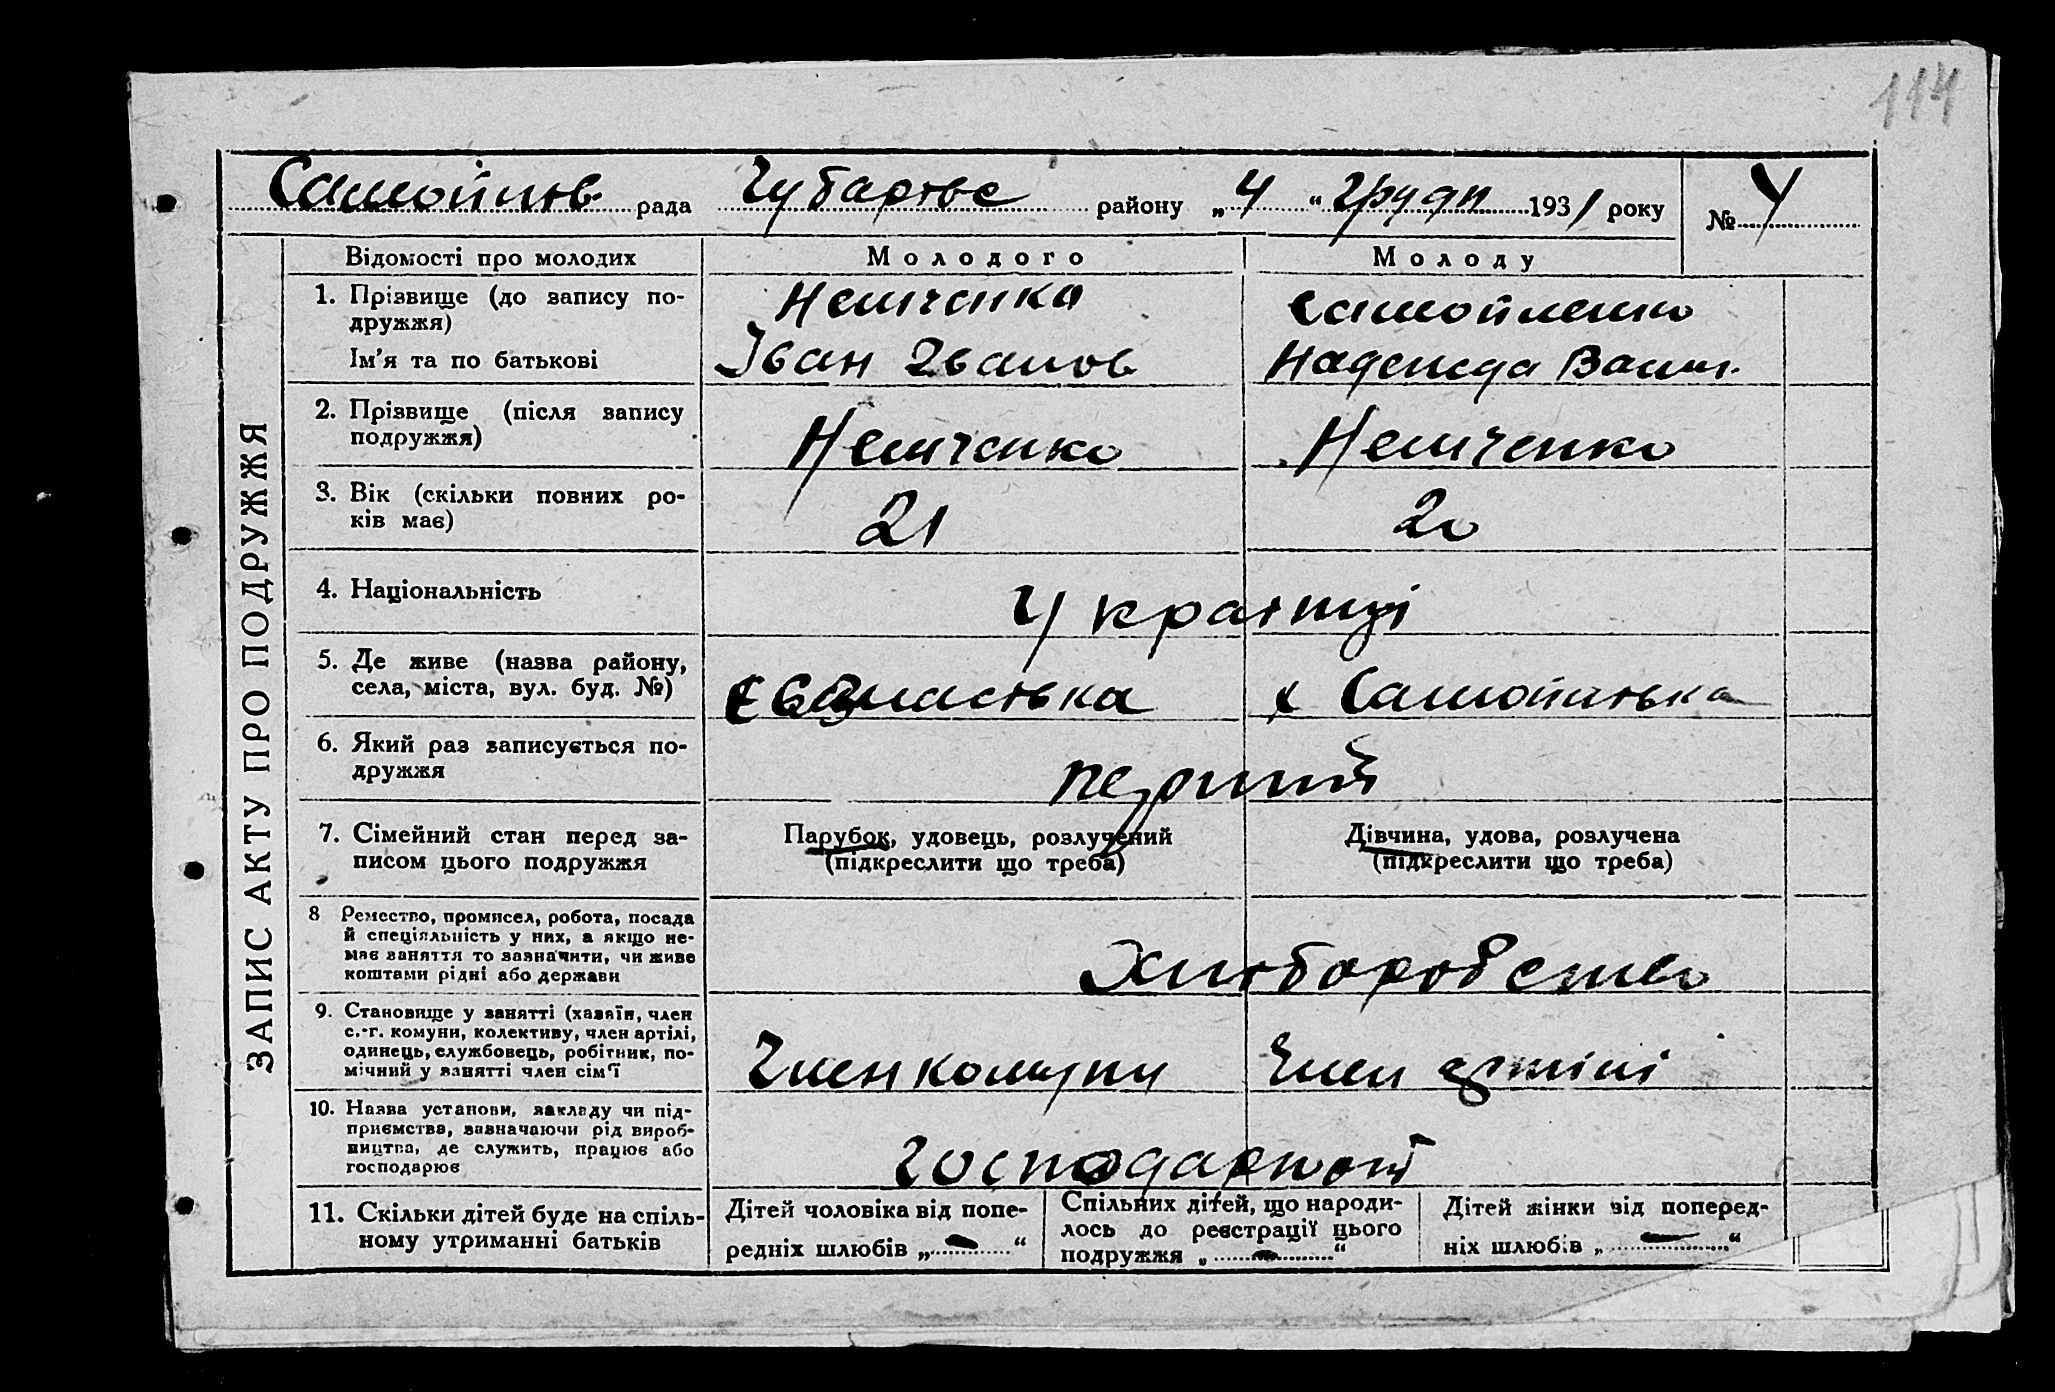 114
Самойлів. рада Чубарівс району „4“ Грудн 1931 року № 4
ЗАПИС АКТУ ПРО ПОДРУЖЖЯ
Відомості про молодих Молодого Молоду
1. Прізвище (до запису по-
дружжя)
Немченко Самойленко
Ім'я та по батькові Іван Іванов Надежда Васил.
2. Прізвище (після запису
подружжя)
Немченко Немченко
3. Вік (скільки повних ро-
ків має)
21 20
4. Національність
Українці
5. Де живе (назва району,
села, міста, вул. буд. №)
х Самойлівка
6. Який раз записується по-
дружжя
перший
7. Сімейний стан перед за-
писом цього подружжя
Парубок, удовець, розлучений
(підкреслити що треба)
Дівчина, удова, розлучена
(підкреслити що треба)
8 Ремество, промисел, робота, посада
й спеціяльність у них, а якщо не-
має заняття то зазначити, чи живе
коштами рідні або держави
Хлібороб ство
9. Становище у занятті (хазяїн, член
с.-г. комуни, колективу, член артілі,
одинець, службовець, робітник, по-
мічний у занятті член сім'ї
Член комуни Член артілі
10. Назва установи, закладу чи під-
приємства, зазначаючи рід вироб-
ництва, де служить, працює або
господарює
11. Скільки дітей буде на спіль-
ному утриманні батьків
Дітей чоловіка від попе-
редніх шлюбів „ — “
Спільних дітей, що народи-
лось до реєстрації цього
подружжя „ — “
Дітей жінки від поперед-
ніх шлюбів „ — “